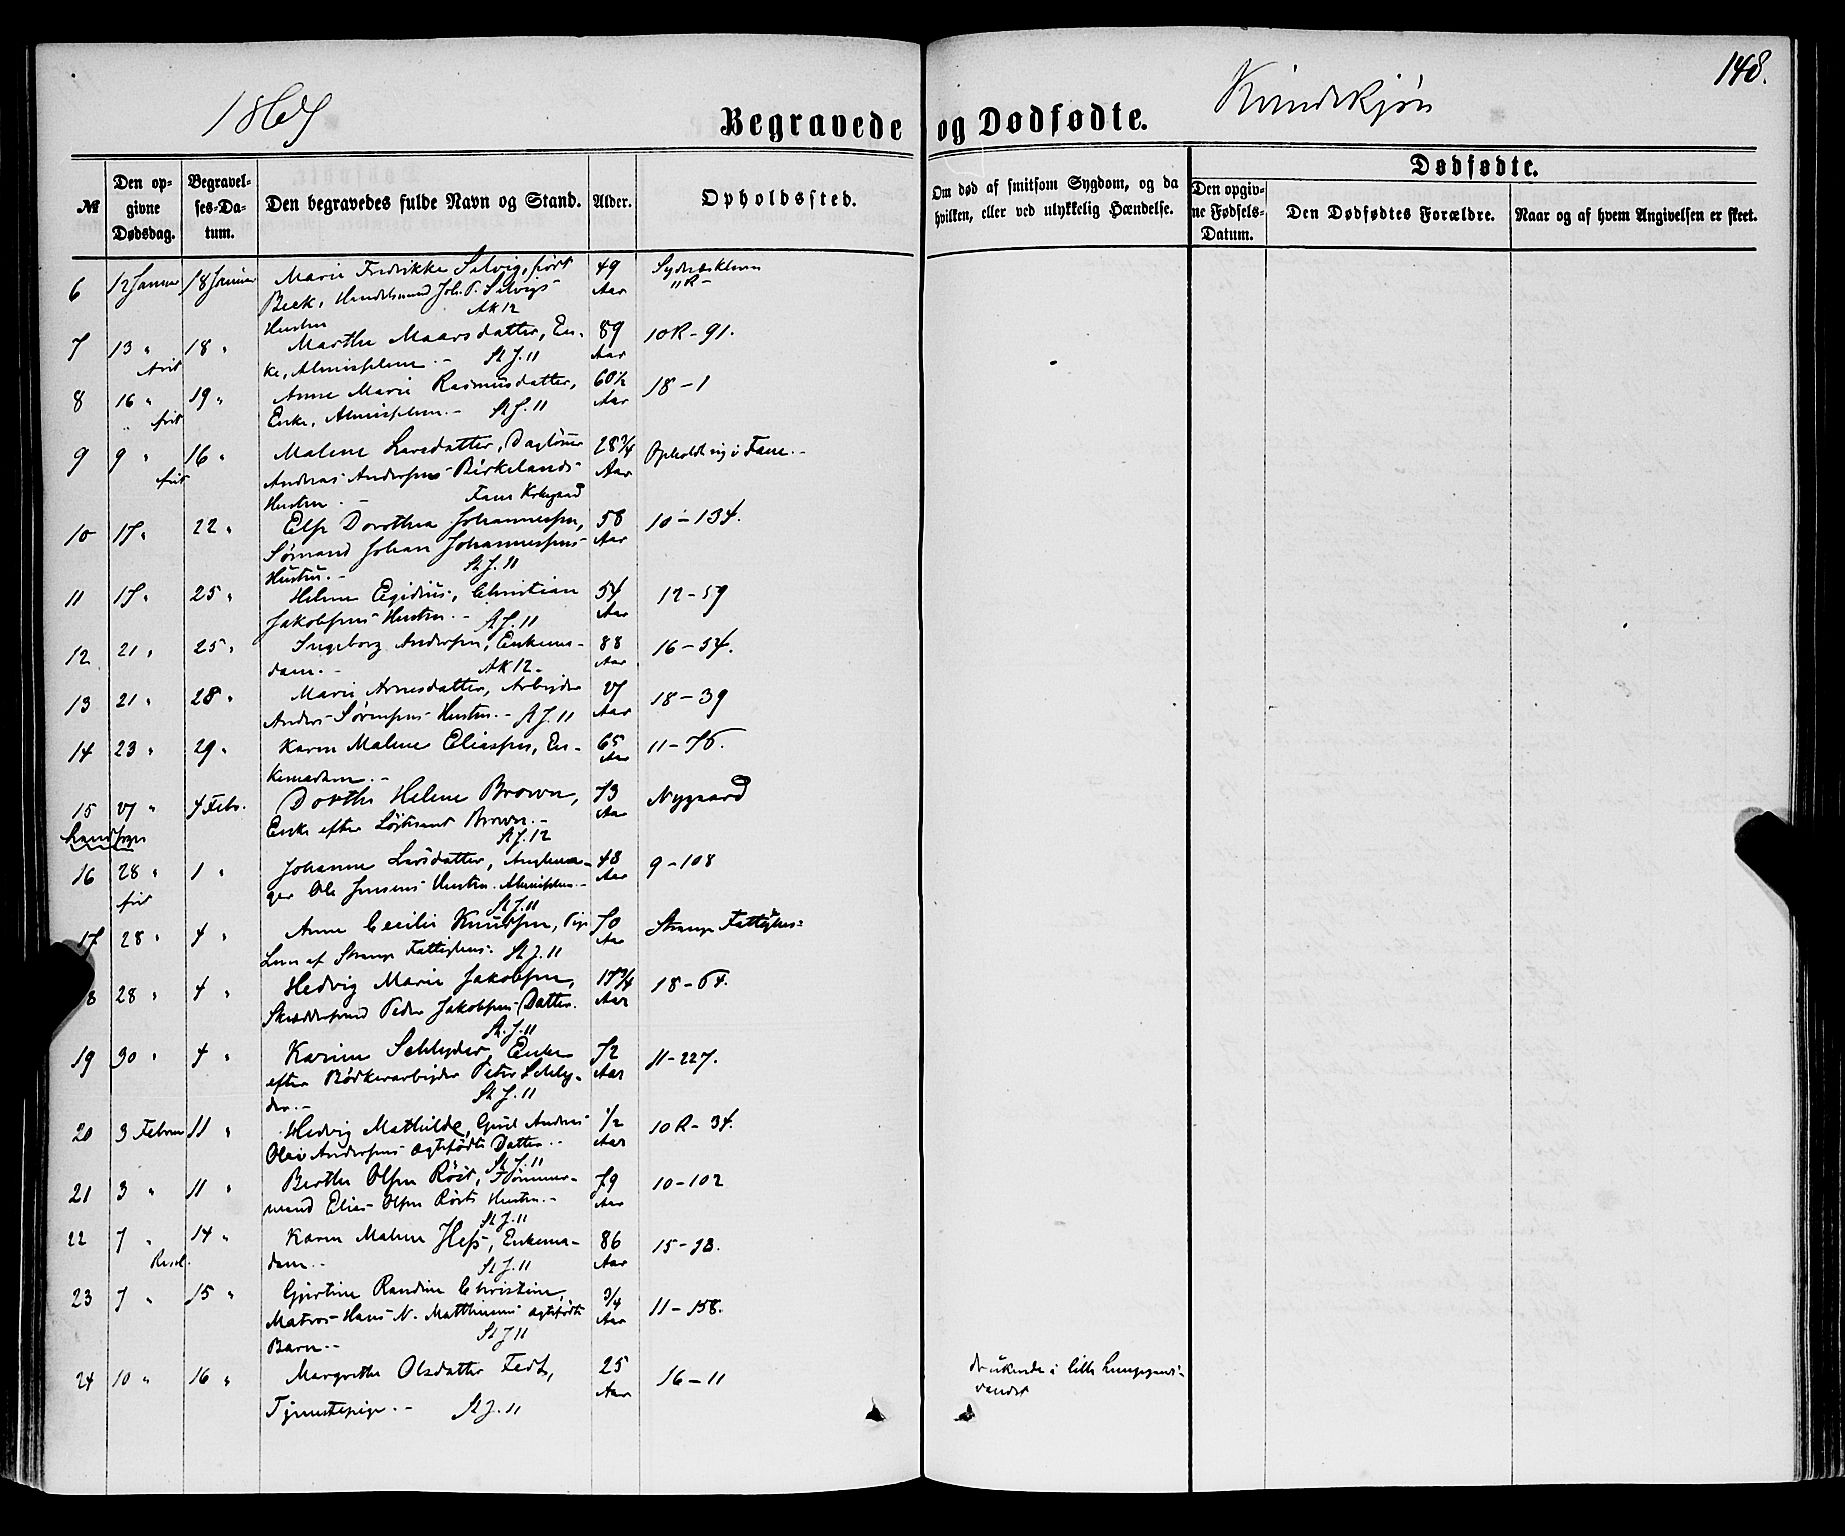 148.
Kvindekjøn
Begravede og Dødfødte.
№
Den op-
givne
Dødsdag.
Begravel-
ses-Da-
tum.
Den begravedes fulde Navn og Stand.
Alder.
Opholdssted.
Om død af smitsom Sygdom, og da
hvilken, eller ved ulykkelig Hændelse.
Dødfødte.
Den opgiv-
ne Fødsels-
Datum.
Den Dødfødtes Forældre.
Naar og af hvem Angivelsen er skeet.
6 12 Januar 18 Januar Marie Fredrikke Selvig, født 49
Beck, Handelsmand Joh. P. Selvigs Aar
Hustru AK 12
7 13 " 18 " Marthe Maarsdatter, En- 89 10R-91.
ke, Almisselem.- St J. 11 Aar
8 16 " 19 " Anne Marie Rasmusdatter, 60½ 18-1
Enke, Almisselem.- St J. 11 Aar
9 9 " 16 " Malene Larsdatter, Dagløner 28¾ Opholdt sig i Fane.-
Andreas Andersens Birkelands Aar
Hustru.- Fane Kirkegaard
10 17 " 22 " Else Dorothea Johannessen, 58 10-134.
Sømand Johan Johannessens Aar
Hustru.- St J. 11
11 17 " 25 " Helene Egidius, Christian 54 12-59
Jakobsens Hustru.- St J. 11 Aar
12 21 " 25 " Ingeborg Andersen, Enkema- 88 16-54.
dam.- AK 12.- Aar
13 21 " 28 " Marie Arnesdatter, Arbeider 18-39
Anders Sørensens Hustru.- St J. 11 Aar
14 23 " 29 " Karen Malene Eliassen, En- 65 11-76.
kemadam.- Aar
15 4 Febr. Dorthe Helene Brown, 73 Nygaard
Enke efter Løjtnant Brown.- Aar
Landsogn St J. 12
16 28 " 1 " Johanne Larsdatter, 43 9-108
Ole Jensens Hustru. Almisselem.- Aar
frit St J. 11
17 28 " 4 " Anne Cecilie Knudsen, Pige 70 Stranges Fattighus
Lem af Stranges Fattighus. St J. 11 Aar
28 " 4 " Hedvig Marie Jakobsen, 17¾ 18-64.
Peder Jakobsens Datter. Aar
St. J. 11
19 30 " 4 " Karine Schlyder, Enke 72 11-227.
efter Bødkerarbeider Peter Schly- Aar
der.- St J. 11
20 3 Februar 11 " Hedvig Mathilde, Andreas ½ 10R-34.
Olai Andersens ægtefødte Datter.- Aar
St J. 11
21 3 " 11 " Berthe Olsen Röst, Tømmer- 79 10-102
mand Elias Olsen Rösts Hustru.- Aar
St J. 11
22 7 " 14 " Karen Malene Hess, Enkema- 86
dam.- St J. 11 Aar
23 7 " 15 " Gjertine Randine Christine, ¾ 11-158.
Matros Hans N. Matthiesens ægtefødte Aar
Barn.- St J 11
24 10 " 16 " Margrethe Olsdatter Fedt, 25 16-11 druknede i lille Lungegaards-
vandet
Tjenestepige.- St J. 11 Aar